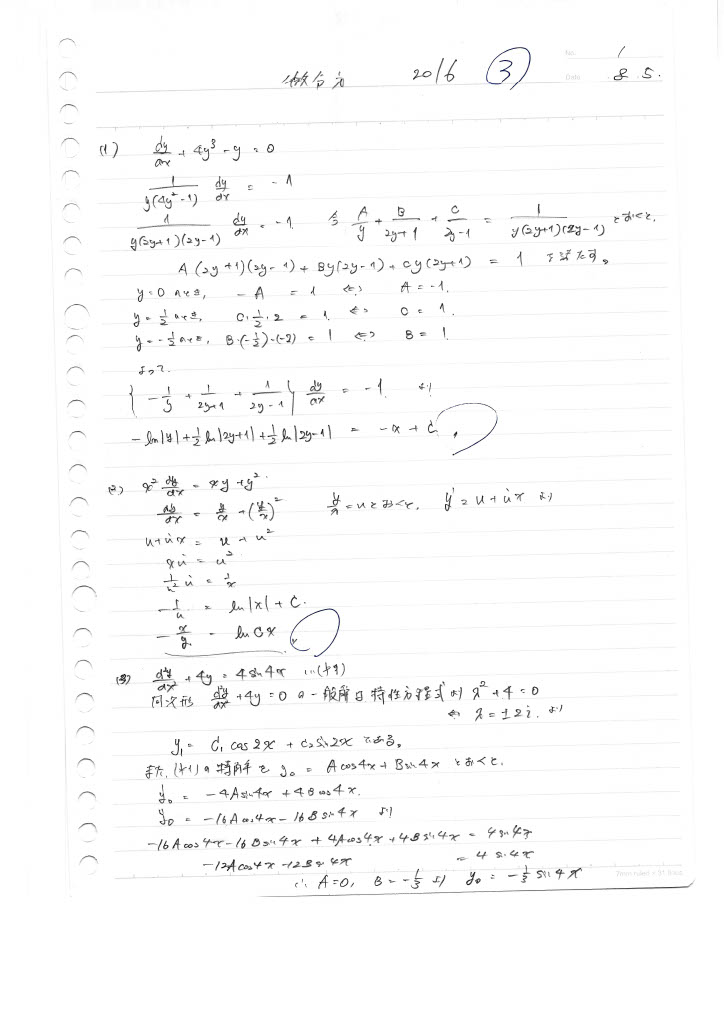 No. 1
2016 ③ Date 8.5.
(1) dy/dx + 4y³ - y = 0
1/(y(4y²-1)) dy/dx = -1
1/(y(2y+1)(2y-1)) dy/dx = -1. 今 A/y + B/(2y+1) + C/(2y-1) = 1/(y(2y+1)(2y-1)) とおくと,
A(2y+1)(2y-1) + By(2y-1) + Cy(2y+1) = 1
y=0 のとき, -A = 1 ⇔ A = -1.
y=1/2 のとき, C·1/2·2 = 1. ⇔ C = 1.
y=-1/2 のとき, B·(-1/2)·(-2) = 1 ⇔ B = 1.
よって.
{ -1/y + 1/(2y+1) + 1/(2y-1) } dy/dx = -1. より
-ln|y| + 1/2 ln|2y+1| + 1/2 ln|2y-1| = -x + C.
(2) x² dy/dx = xy + y².
dy/dx = y/x + (y/x)² y/x = u とおくと, y' = u + u̇x より
u + u̇x = u + u²
xu̇ = u²
1/u² u̇ = 1/x
-1/u = ln|x| + C.
-x/y = ln Cx.
(3) d²y/dx² + 4y = 4 sin 4x …(*1)
同次形 d²y/dx² + 4y = 0 の一般解は特性方程式より λ² + 4 = 0
⇔ λ = ±2i. より
y₁ = C₁ cos 2x + C₂ sin 2x である。
また, (*1) の特解を y₀ = A cos 4x + B sin 4x とおくと.
ẏ₀ = -4A sin 4x + 4B cos 4x.
ÿ₀ = -16A cos 4x - 16B sin 4x より
-16A cos 4x - 16B sin 4x + 4A cos 4x + 4B sin 4x = 4 sin 4x
-12A cos 4x - 12B sin 4x = 4 sin 4x
∴ A = 0, B = -1/3 より y₀ = -1/3 sin 4x